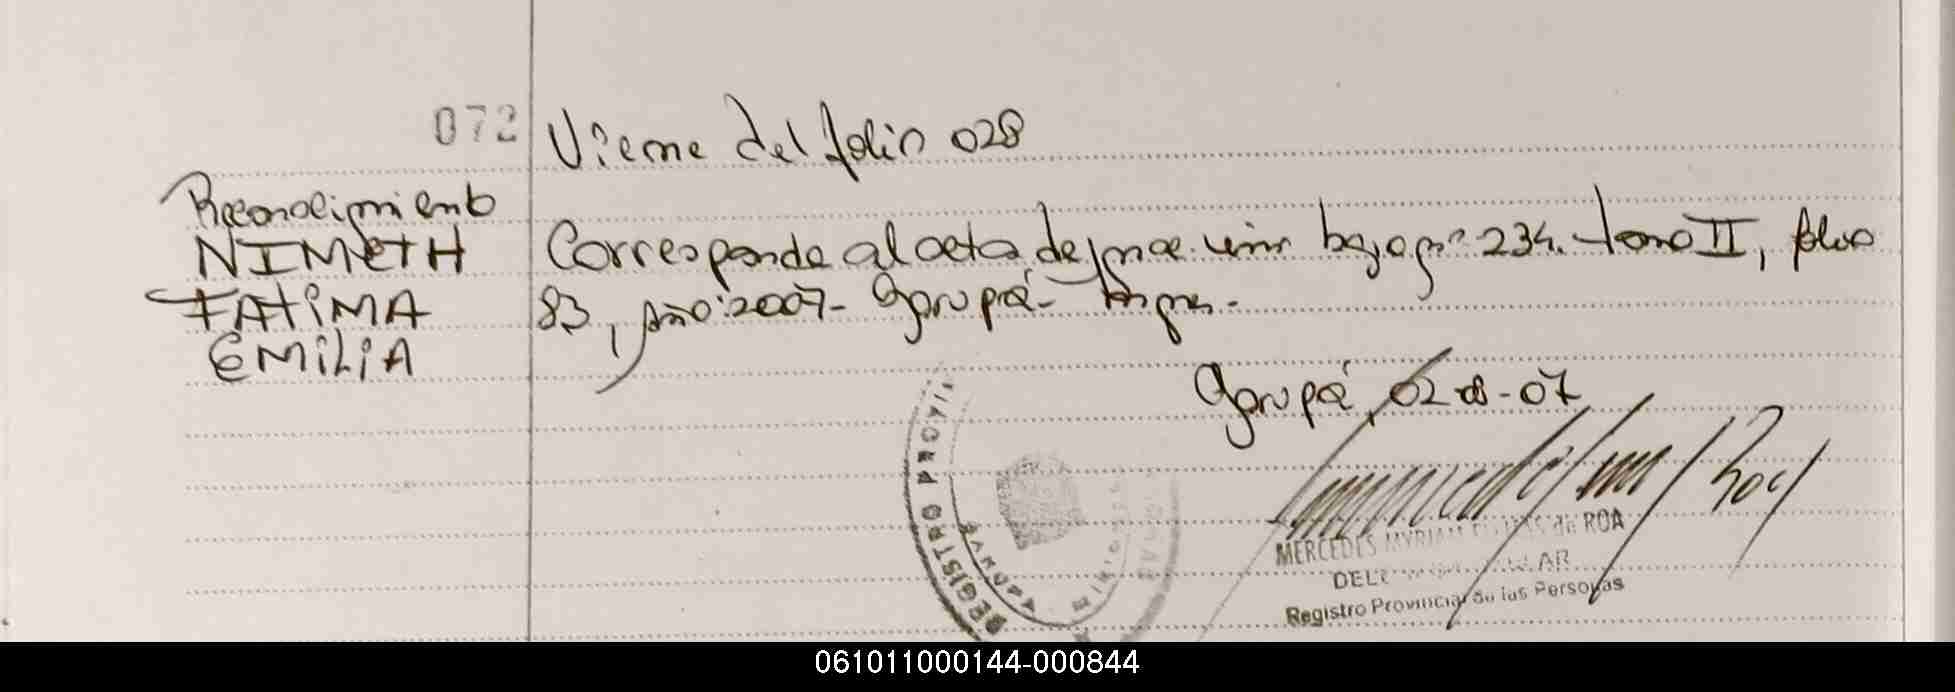 072 Viene del folio 028
Reconocimiento
NIMETH Corresponde al acta de nac. bajo nº 234. tomo II, folio
FATIMA 83, año: 2007- Garupá-
EMILIA
Garupá, 02-8-07
REGISTRO PROVIN
MERCEDES MYRIAM de ROA
Registro Provincial de las Personas
061011000144-000844